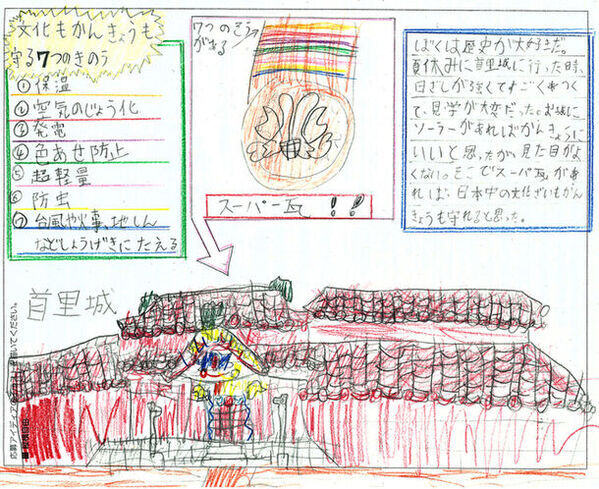 文化もかんきょうも
守る7つのきのう
①保温
②空気のじょう化
③発電
④色あせ防止
⑤超軽量
⑥防虫
⑦台風や火事、地しん
などしょうげきにたえる
7つのそうが
がある!
スーパー瓦!!
ぼくは歴史が大好きだ。
夏休みに首里城に行った時、
日ざしが強くてすごくあつく
て、見学が大変だった。お城に
ソーラーがあればかんきょうに
いいと思ったが、見た目がよ
くない。そこでスーパー瓦があ
れば、日本中の文化ざいもかん
きょうも守れると思った。
首里城